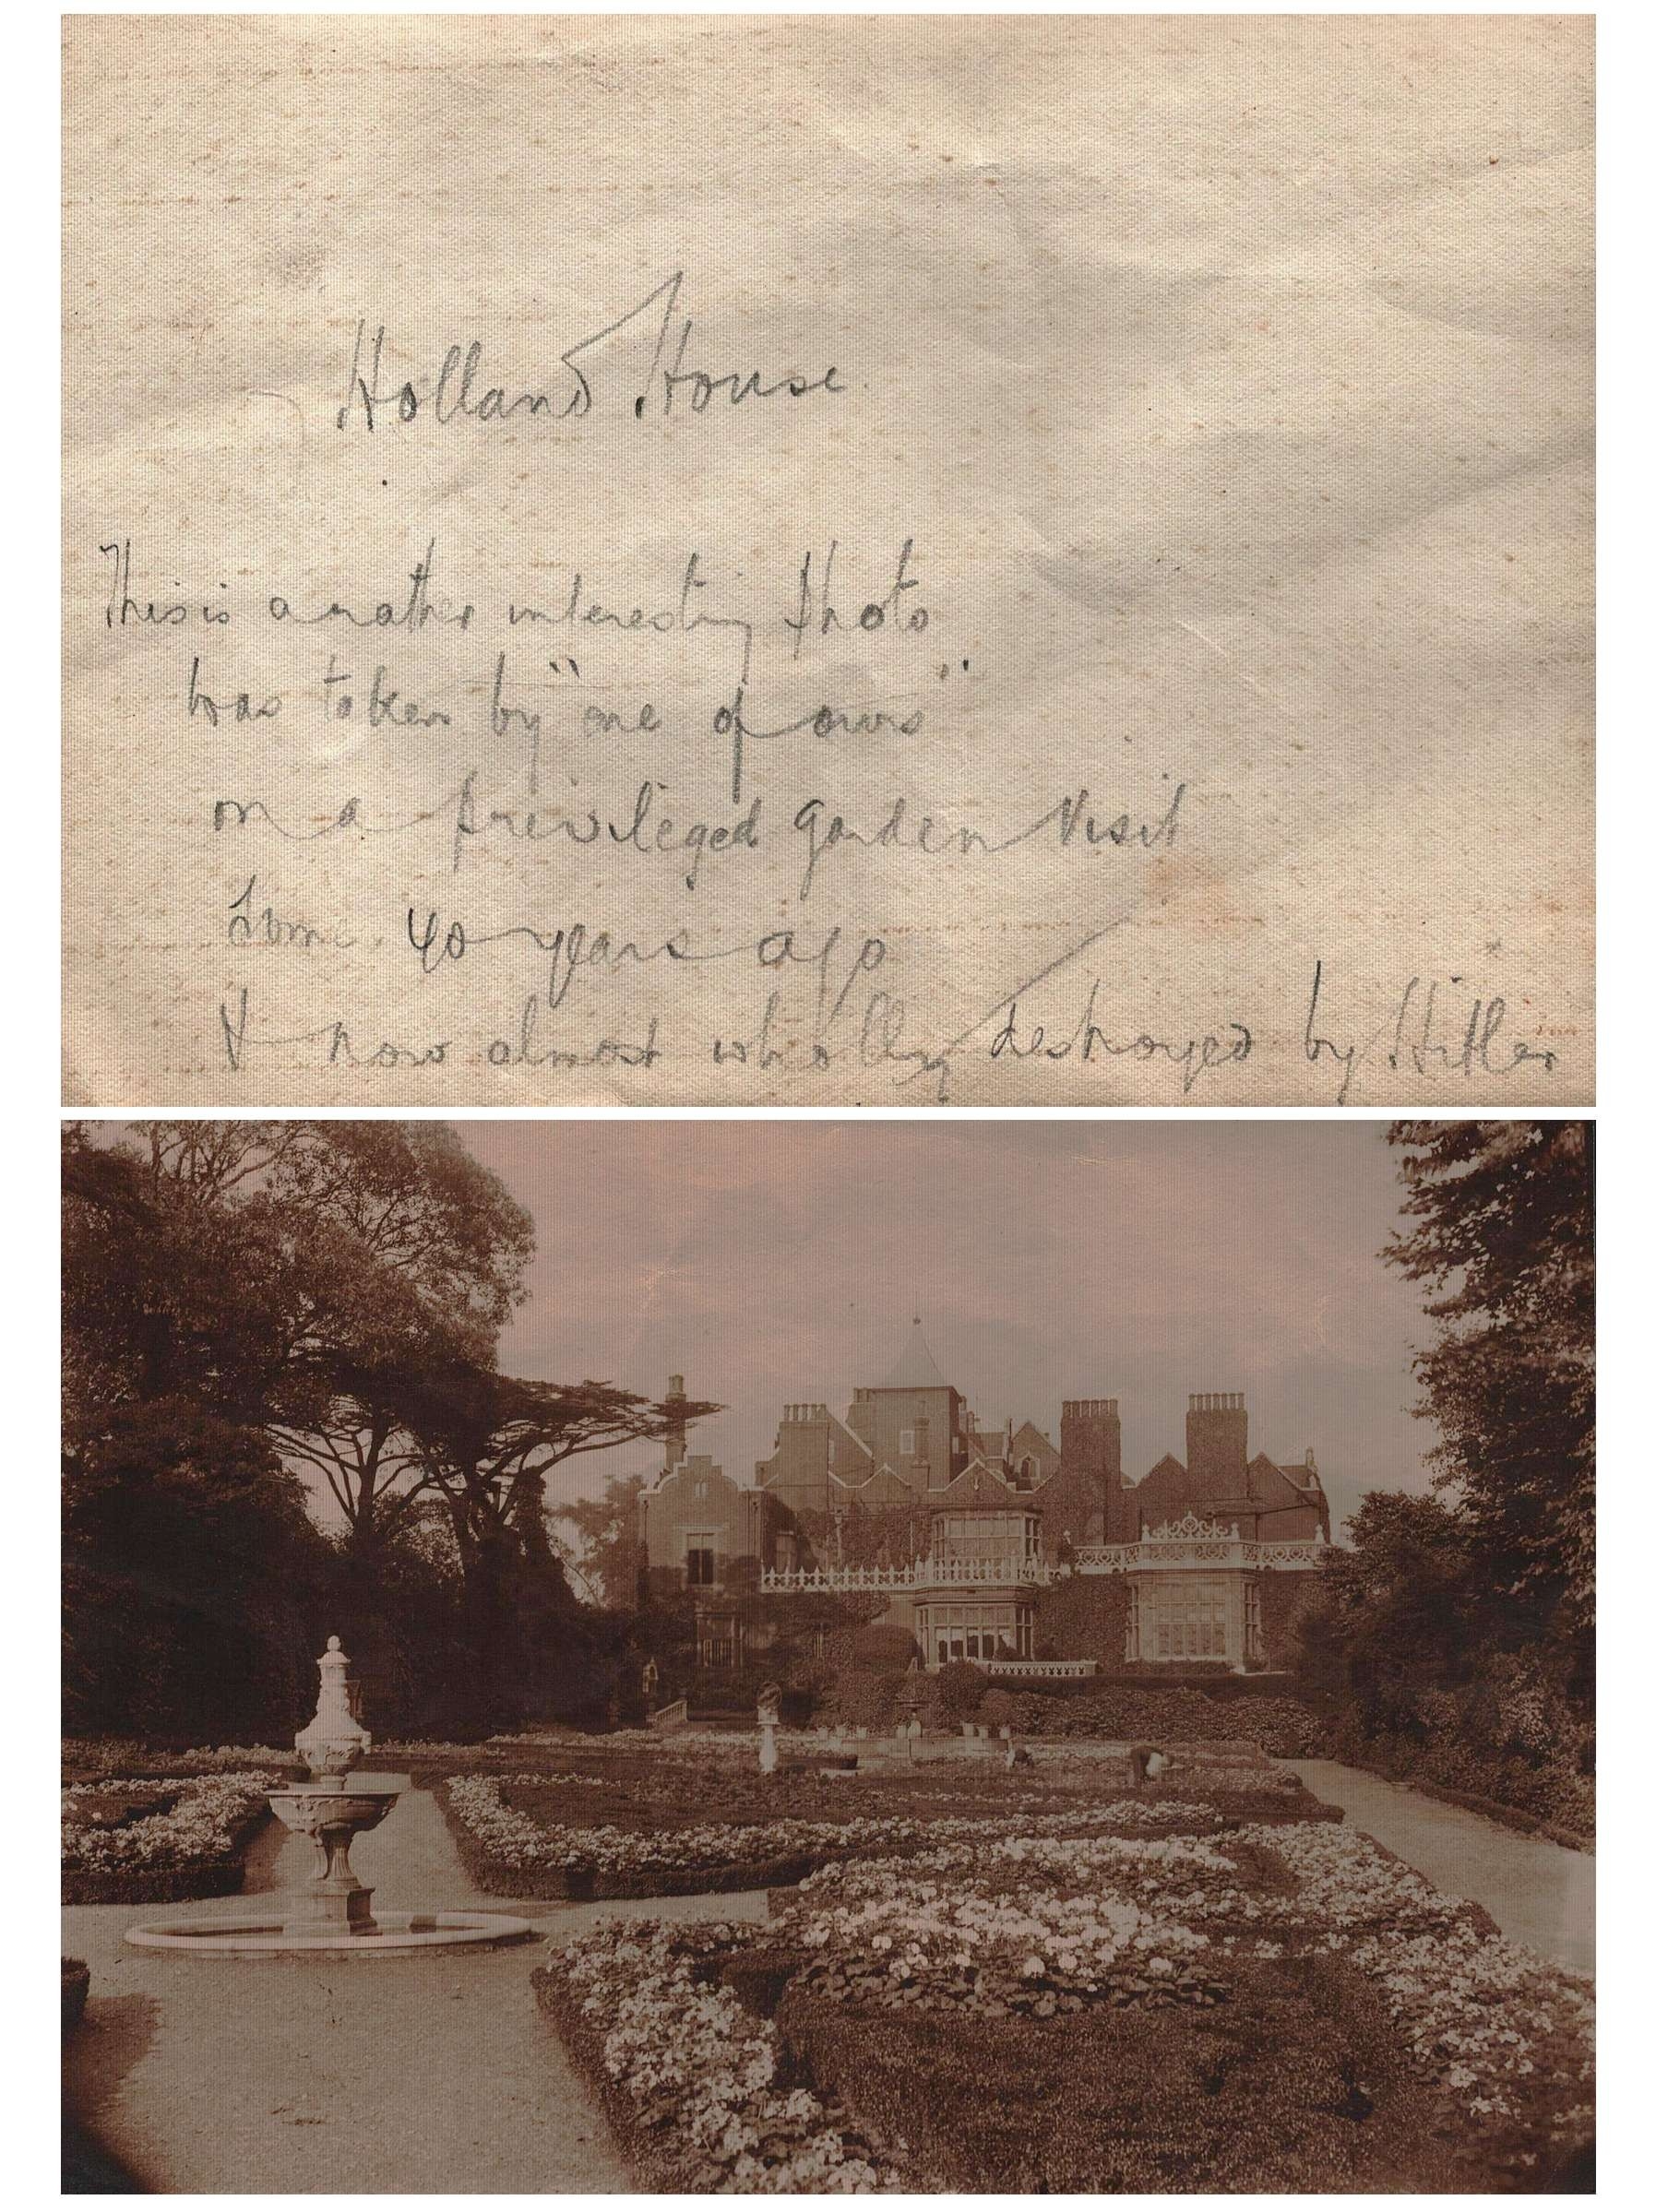 Holland House.
This is a rather interesting Photo
was taken by "one of ours"
on a privileged garden visit
Some 40 years ago
& now almost wholly destroyed by Hitler